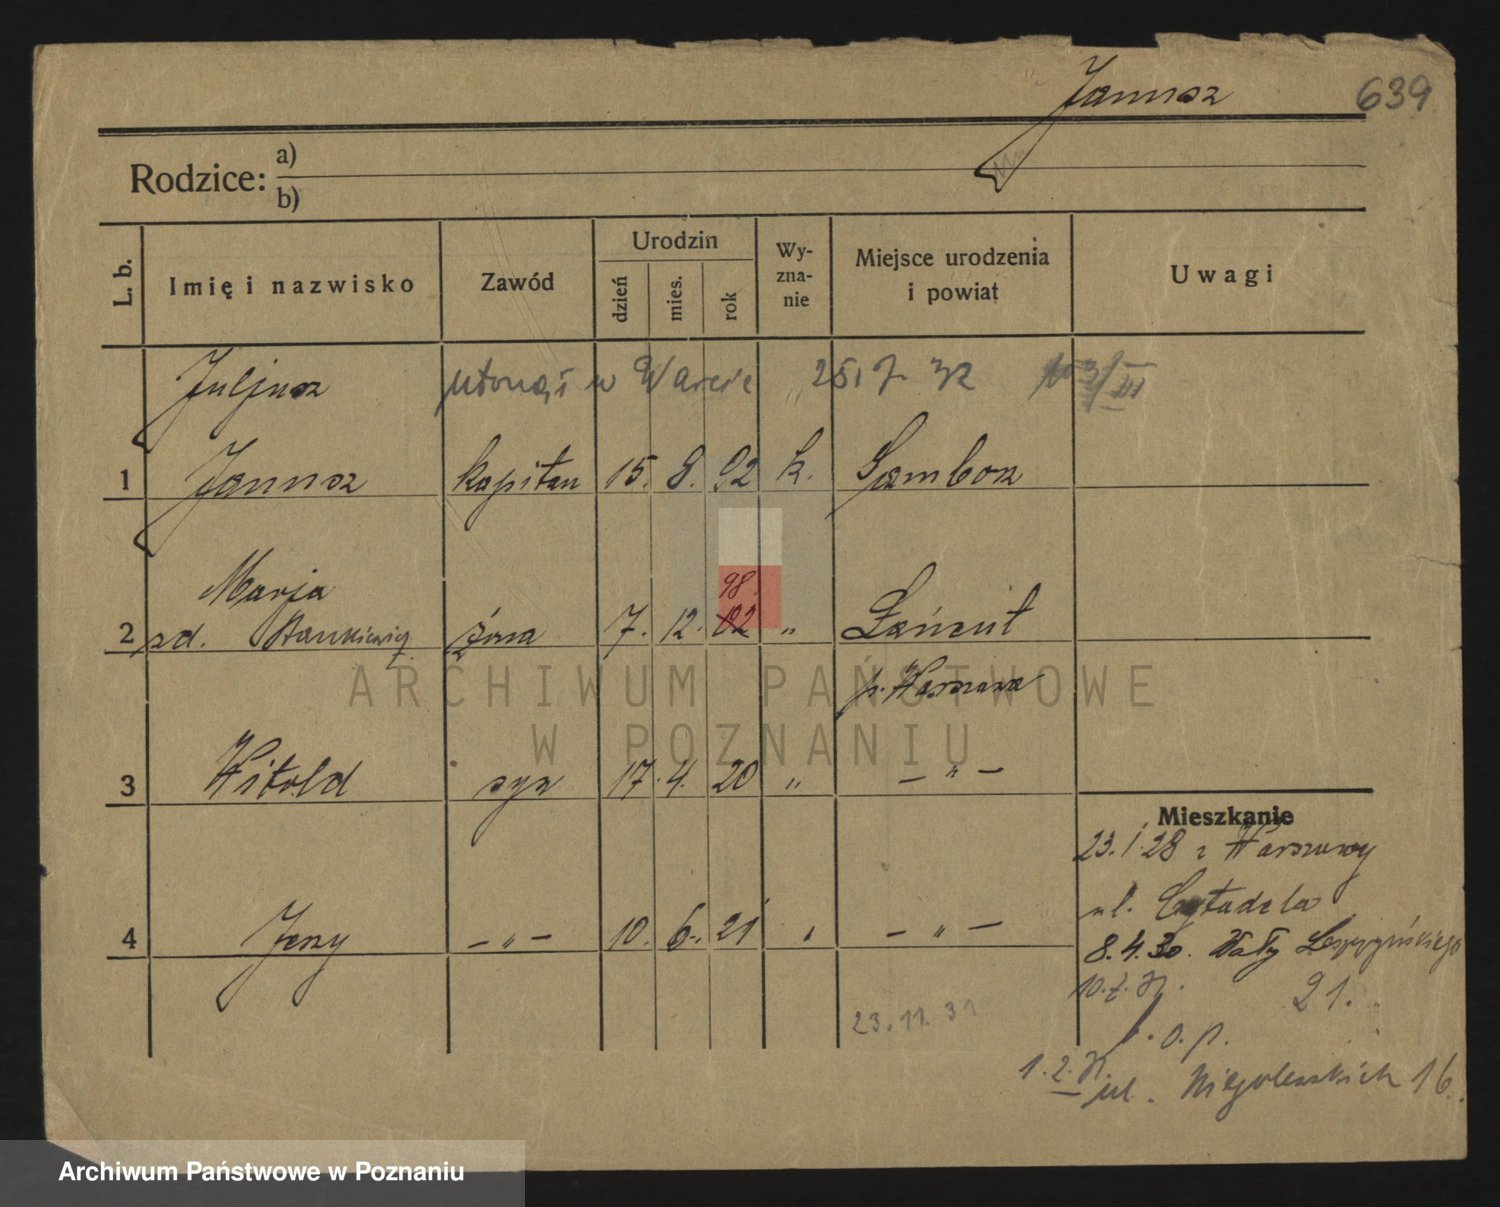 Janusz 639
Rodzice: a)
b)
L. b. Imię i nazwisko Zawód Urodzin dzień mies. rok Wy-zna-nie Miejsce urodzenia i powiat Uwagi
Juljusz utonął w Warcie 25.7.32
1 Janusz kapitan 15. 8. 92 k. Sambor
Marja 98.
2 zd. Stankiewicz żona 7. 12. 02 " Łańcut
p. Warszawa
3 Witold syn 17. 4. 20 " — " —
Mieszkanie
23.1.28 z Warszawy
ul. Cytadela
4 Jerzy — " — 10. 6. 21 " — " —
8.4.30. Wały Leszczyńskiego
21.
23.11.31
f.o.p.
ul. Niegolewskich 16.
ARCHIWUM PAŃSTWOWE
W POZNANIU
Archiwum Państwowe w Poznaniu